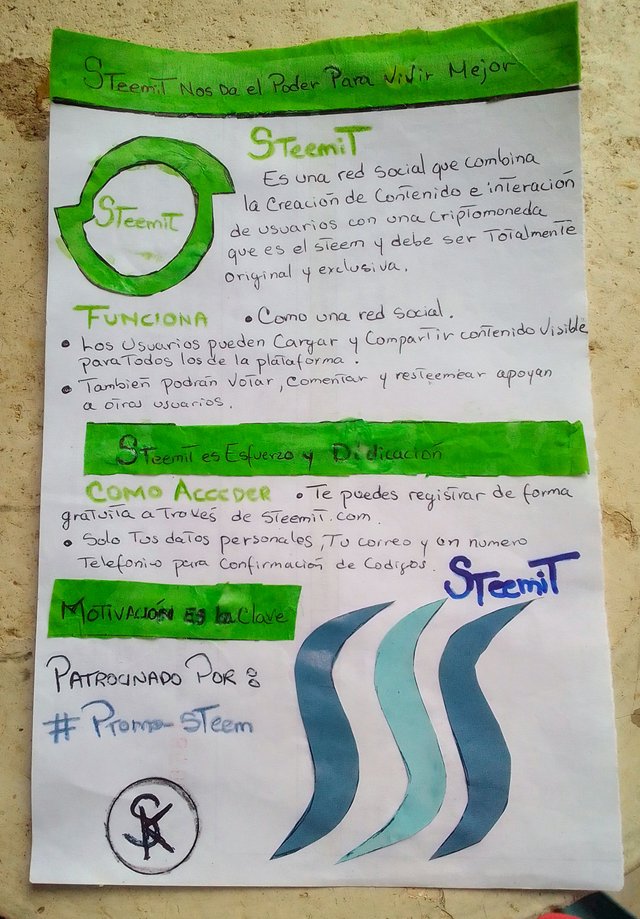 STeemiT Nos Da el Poder Para ViVir Mejor
STeemiT
STeemiT
Es una red social que combina
la Creación de Contenido e interación
de usuarios con una Criptomoneda
que es el sTeem y debe ser Totalmente
original y exclusiva.
FUNCIONA • Como una red social.
• Los Usuarios pueden Cargar y Compartir contenido Visible
para Todos los de la plataforma.
• Tambien podran Votar, comentar y resteemear apoyan
a otros usuarios.
STeemiT es Esfuerzo y Didicación
COMO ACCEDER • Te puedes registrar de forma
gratuita a Través de sTeemiT.com.
• Solo Tus datos personales, Tu correo y un numero
Telefonico para Confirmación de Codigos.
STeemiT
MOTIVACIÓN ES la Clave
PATROCINADO POR:
# Promo-STeem
SK